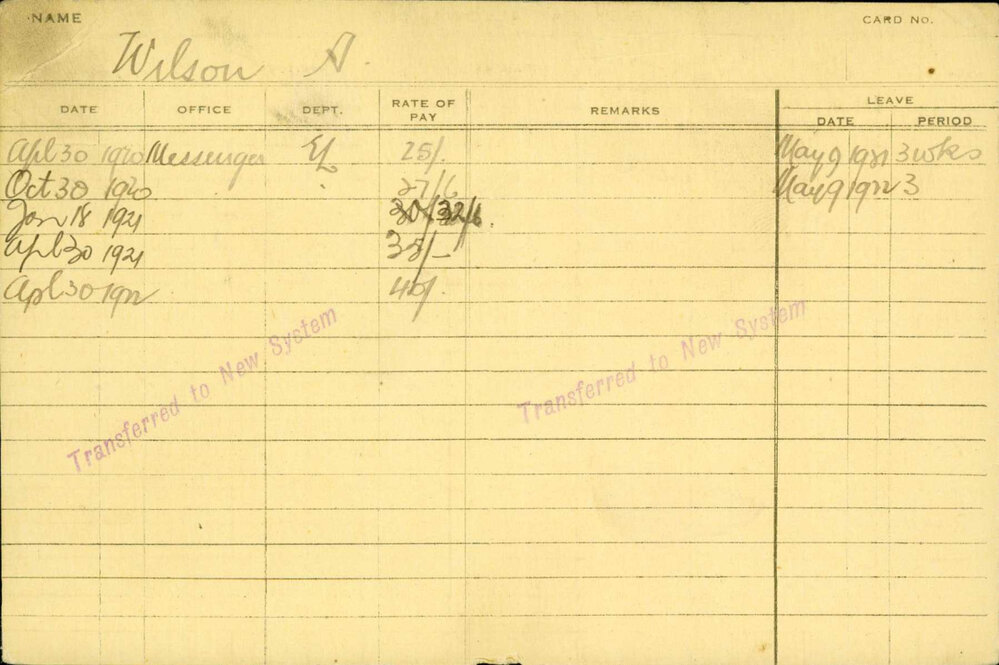 NAME
CARD NO.
Wilson A.
DATE OFFICE DEPT. RATE OF PAY REMARKS LEAVE
DATE PERIOD
Apl 30 1920 Messenger 25/. May 9 1921 3 wks
Oct 30 1920 27/6 May 9 1922 3
Jan 18 1921 32/6.
Apl 30 1921 35/-
Apl 30 1922 40/.
Transferred to New System
Transferred to New System